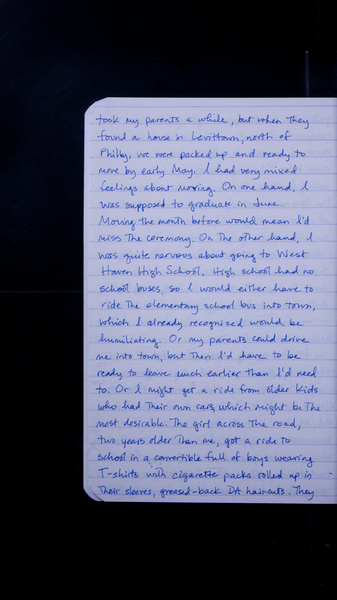 took my parents a while, but when they
found a house in Levittown, north of
Philly, we were packed up and ready to
move by early May. I had very mixed
feelings about moving. On one hand, I
was supposed to graduate in June.
Moving the month before would mean I'd
miss the ceremony. On the other hand, I
was quite nervous about going to West
Haven High School. High school had no
school buses, so I would either have to
ride the elementary school bus into town,
which I already recognized would be
humiliating. Or my parents could drive
me into town, but then I'd have to be
ready to leave much earlier than I'd need
to. Or I might get a ride from older kids
who had their own cars which might be the
most desirable. The girl across the road,
two years older than me, got a ride to
school in a convertible full of boys wearing
T-shirts with cigarette packs rolled up in
their sleeves, greased-back DA haircuts. They